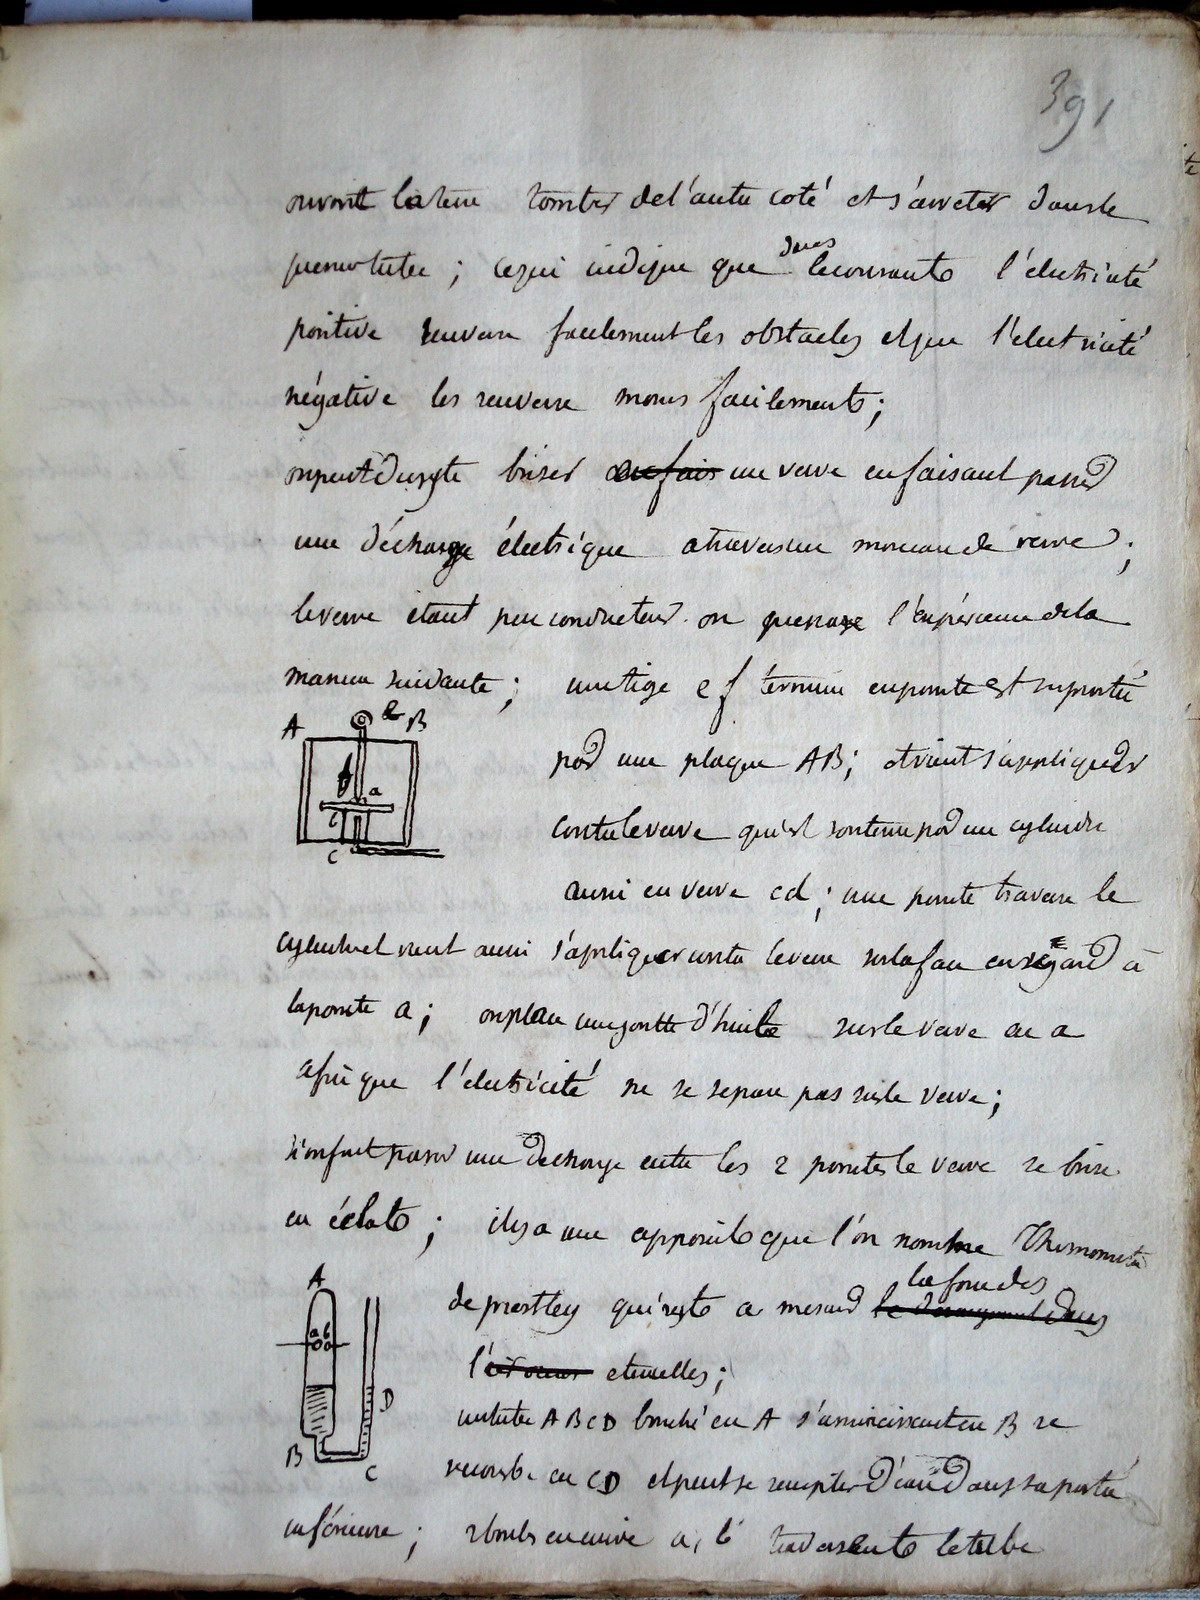 391
ouvrant la terre tomber de l'autre coté et s'arreter dans le
premier tube ; ce qui indique que dans le courants l'électricité
positive renverse facilement les obstacles et que l'électricité
négative les renverse moins facilements ;
on peut du reste briser un verre en faisant passer
une décharge électrique a travers un morceau de verre ;
le verre étant peu conducteur. on prepare l'expérience de la
maniere suivante ; une tige e f terminée en pointe est suportée
A e B
par une plaque AB ; et vient s'appliquer
b a
contre le verre qui est soutenu par un cylindre
c
aussi en verre cd ; une pointe traverse le
cylindre et vient aussi s'apliquer contre le verre sur la face en regard à
la pointe a ; on place une goutte d'huile sur le verre en a
afin que l'électricité ne se separe pas sur le verre ;
si on fait passer une decharge entre les 2 pointes le verre se brise
en éclats ; il y a une appareils que l'on nomme Thermometre
A
de priestley qui sert a mesurer la force des
a b
etincelles ;
D
un tube ABCD bouché en A s'amincissant en B se
B C
recourbe en CD et peut se remplir d'eau dans sa partie
inférieure ; 2 boules en cuivre a, b traversents le tube